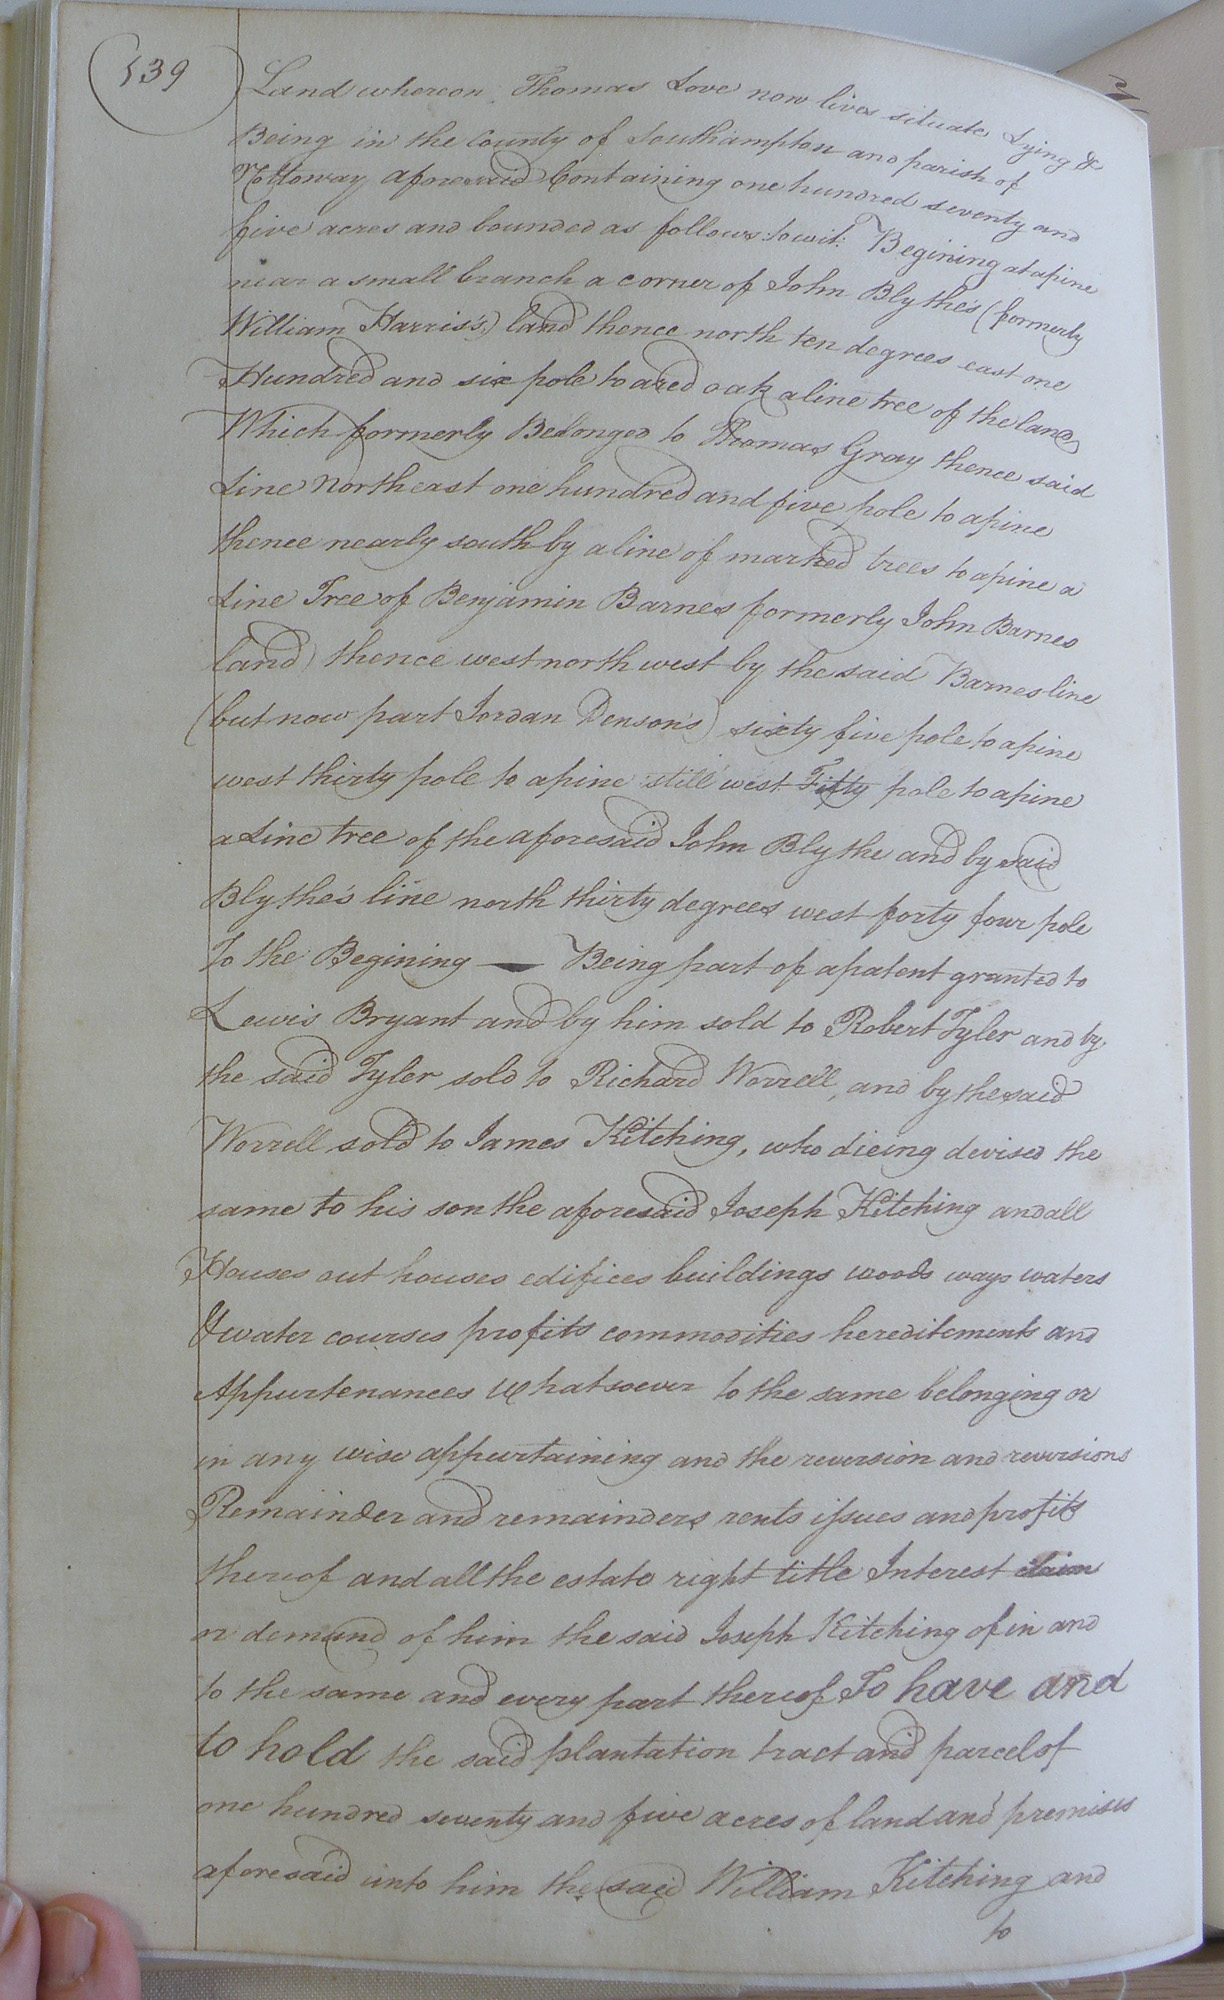 539
Land whereon Thomas Love now lives situate Lying &
Being in the County of Southampton and parish of
Nottoway aforesaid Containing one hundred seventy and
five acres and bounded as follows: towit: Begining at a pine
near a small branch a corner of John Blythe's (formerly
William Harris's) land thence north ten degrees east one
Hundred and six pole to a red oak a line tree of the land
Which formerly Belonged to Thomas Gray thence said
Line North east one hundred and five pole to a pine
thence nearly south by a line of marked trees to a pine a
Line Tree of Benjamin Barnes formerly John Barnes
land) thence west north west by the said Barnes line
(but now part Jordan Denson's) sixty five pole to a pine
west thirty pole to a pine still west Fifty pole to a pine
a Line tree of the aforesaid John Blythe and by said
Blythe's line north thirty degrees west forty four pole
To the Begining — Being part of a patent granted to
Lewis Bryant and by him sold to Robert Tyler and by
the said Tyler sold to Richard Worrell, and by the said
Worrell sold to James Kitching, who dieing devised the
same to his son the aforesaid Joseph Kitching and all
Houses out houses edifices buildings woods ways waters
& water courses profits commodities hereditements and
Appurtenances Whatsoever to the same belonging or
in any wise appurtaining and the reversion and reversions
Remainder and remainders rents issues and profits
thereof and all the estate right title Interest claim
or demand of him the said Joseph Kitching of in and
to the same and every part thereof To have and
to hold the said plantation tract and parcel of
one hundred seventy and five acres of land and premises
aforesaid unto him the said William Kitching and
to